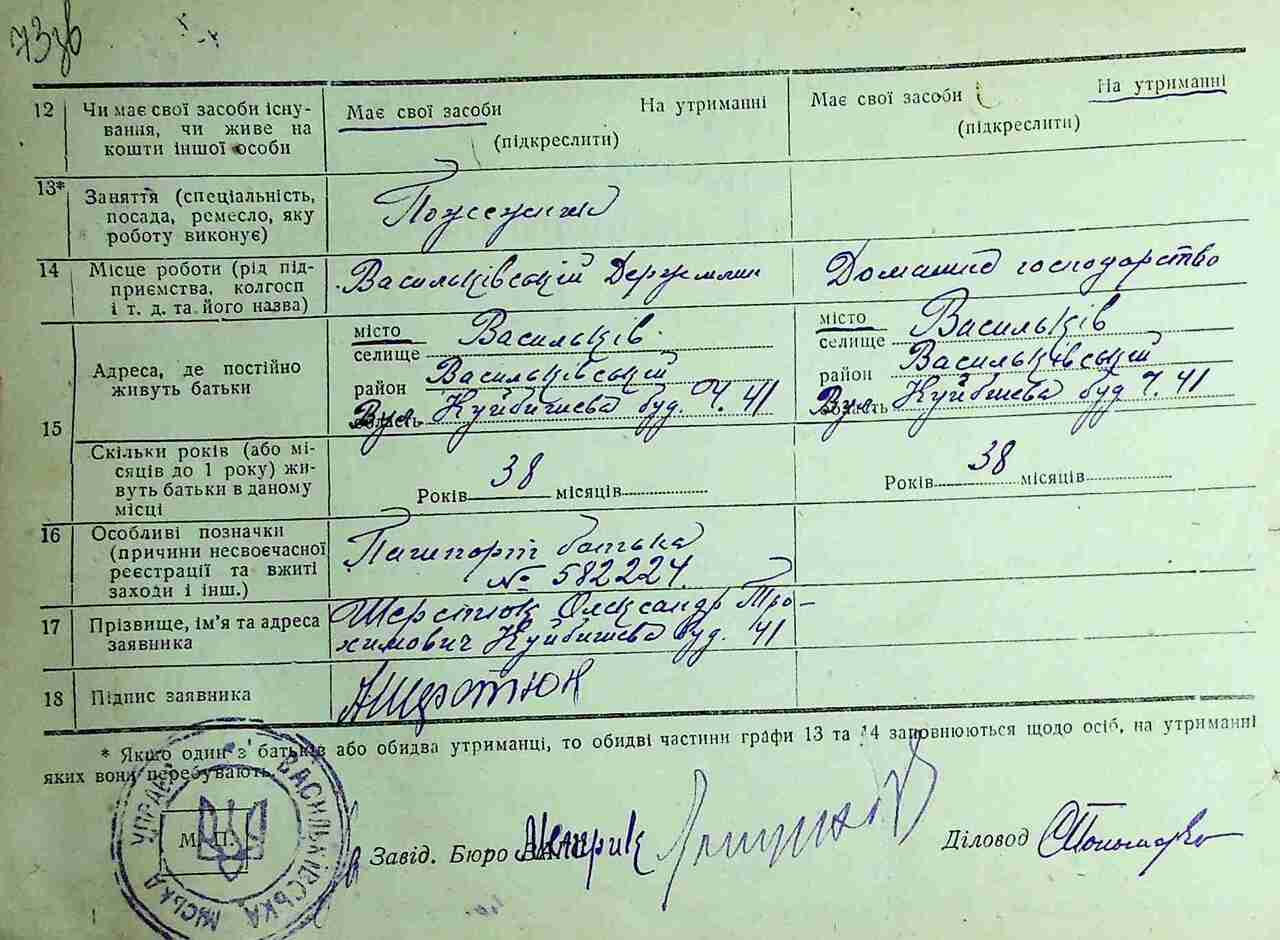 73зв
12 Чи має свої засоби існу-
вання, чи живе на
кошти іншої особи
Має свої засоби На утриманні
(підкреслити)
Має свої засоби На утриманні
(підкреслити)
13* Заняття (спеціальність,
посада, ремесло, яку
роботу виконує)
14 Місце роботи (рід під-
приємства, колгосп
і т. д. та його назва)
Васильківський Держмлин
Домашнє господарство
15 Адреса, де постійно
живуть батьки
місто Васильків
селище
район Васильківський
область Вул. Куйбишева буд. Ч. 41
місто Васильків
селище
район Васильківський
область Вул. Куйбишева буд Ч. 41
Скільки років (або мі-
сяців до 1 року) жи-
вуть батьки в даному
місці
Років 38 місяців
Років 38 місяців
16 Особливі позначки
(причини несвоєчасної
реєстрації та вжиті
заходи і інш.)
Пашпорт батька
№ 582224.
17 Прізвище, ім'я та адреса
заявника
Шерстюк Олександр Тро-
химович Куйбишева буд. 41
18 Підпис заявника
* Якщо один з батьків або обидва утриманці, то обидві частини графи 13 та 14 заповнюються щодо осіб, на утриманні
яких вони перебувають.
ВАСИЛЬКІВСЬКА МІСЬКА УПРАВА
М. П.
Завід. Бюро ЗАГС
Діловод Пономарко